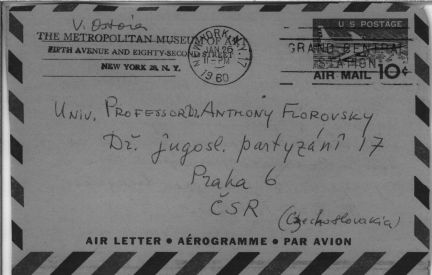 V. Ostoia
THE METROPOLITAN MUSEUM OF ART
FIFTH AVENUE AND EIGHTY-SECOND STREET
NEW YORK 28, N. Y.
NEW YORK, N.Y. 17
JAN 26
11-PM
1960
GRAND CENTRAL
STATION
U S POSTAGE
AIR MAIL 10¢
Univ. PROFESSOR Dr ANTHONY FLOROVSKY
Dř. jugosl. partyzánί 17
Praha 6
ČSR
(Czechoslovakia)
AIR LETTER • AÉROGRAMME • PAR AVION